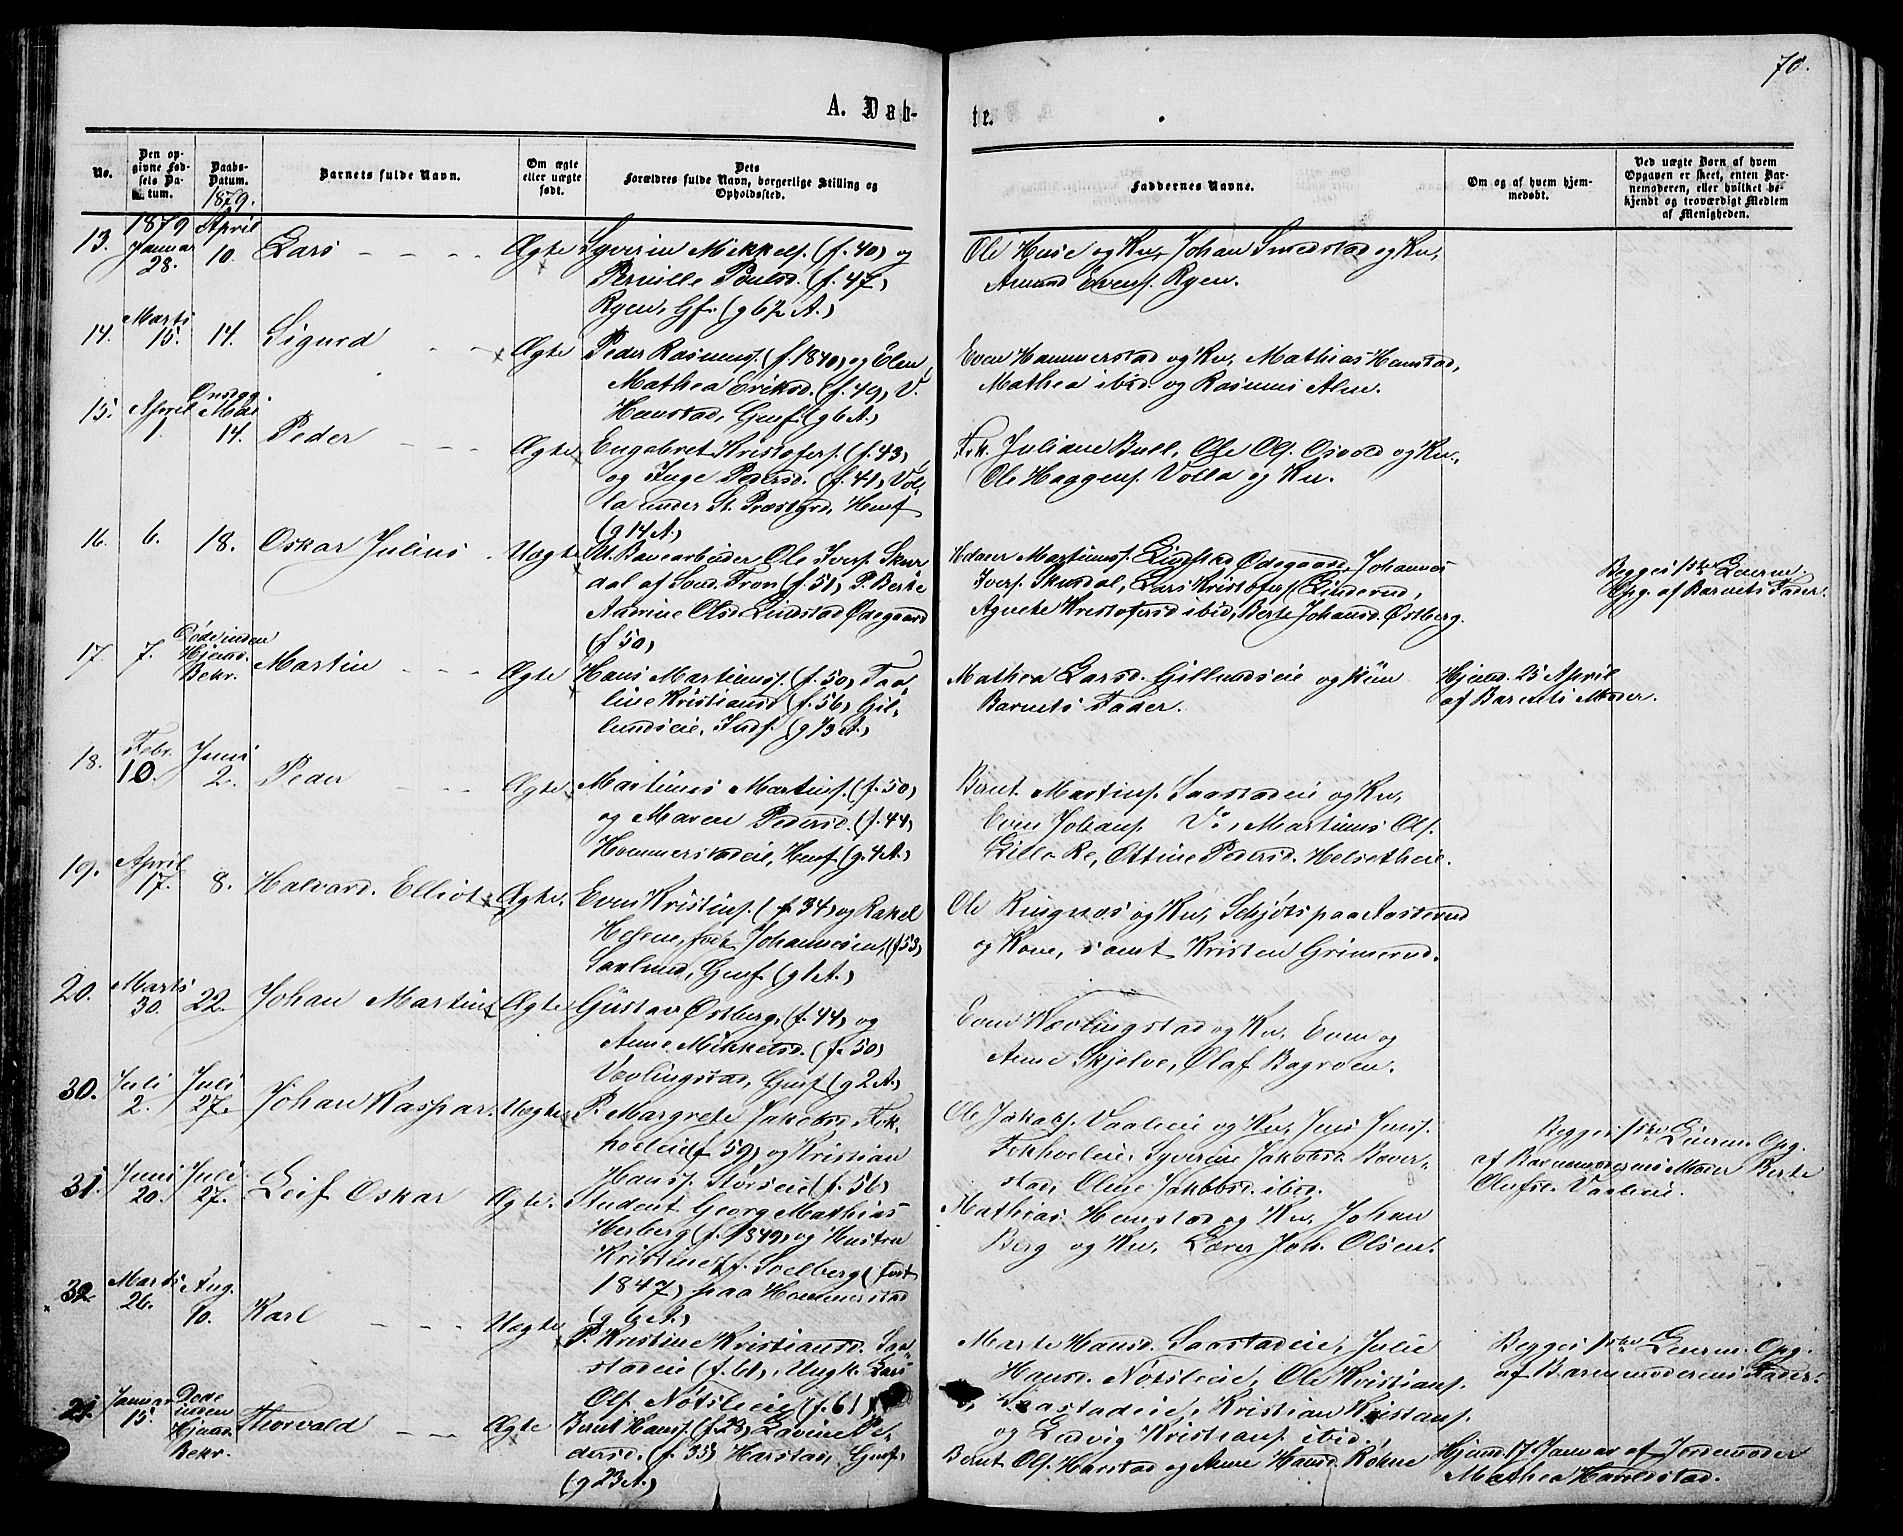 70.
A. Dåb-
te.
No.
Den opgivne Fødsels Datum.
Daabs-Datum.
1879.
Barnets fulde Navn.
Om ægte eller uægte født.
Dets Forældres fulde Navn, borgerlige Stilling og Opholdssted.
Faddernes Navne.
Om og af hvem hjemmedøbt.
Ved uægte Børn af hvem Opgaven er skeet, enten Barnemoderen, eller hvilket bekjendt og troværdigt Medlem af Menigheden.
13. 1879 Januar 28. April 10. Lars Ægte Syverin Mikkels. (f. 40) og
Pernille Poulsd. (f. 47)
Ryen, Gf. (g 62 A.)
Ole Huse og Kn, Johan Smedstad og Kn,
Amund Evens. Ryen.
14. Marts 15. 14. Sigurd Ægte Peder Rasmuss. (f. 1840) og Elen
Mathea Eriksd. (f. 49) V.
Hemstad, Gmf. (g 6 A.)
Even Hammerstad og Kn, Mathias Hemstad,
Mathea ibid. og Rasmus Alm.
15. April 1. Mai 14. Peder Ægte Engebret Kristofers. (f. 43)
og Inge Pedersd. (f. 41) Vol-
la under St. Præstgrd, Hmf
(g 14 A.)
Frk. Juliane Bull, Ole Ols. Opsal og Kn.,
Ole Haagens. Volla og Kn.
16. 6. 18. Oskar Julius Uægte U. Banearbeider Ole Ivers. Skur-
dal af Sønd. Fron (f. 51) P. Berte
Andrine Olsd. Lindstad Ødegaard
(f 50)
Hdaner Martinuss. Lindstad Ødegaard, Johannes
Ivers. Skurdal, Lars Kristofers. Linderud,
Agnethe Kristofersd ibid, Berte Johansd. Østberg.
Begges 1ste Leierm.
Opg. af Barnets Fader.
17. 7. Døde inden Hjemd. Bekr. Martin Ægte Hans Martinuss. (f. 50) Paa-
line Kristiansd (f. 56) Gil-
lundseie, Indf. (g 13 A.)
Mathea Larsd. Gillundseie og Kun
Barnets Fader.
Hjemd. 25 April
af Barnets Moder.
18. Febr. 10. Juni 2. Peder Ægte Martinus Martins. (f. 50)
og Maren Pedersd. (f. 44)
Hommerstadeie, Hmf. (g. 4 A.)
Bernt Martins. Saastadeie og Kn,
Even Johans. Do, Martinus Ols.
Lille Re, Ottine Pedersd. Helsetheie.
19. April 17. 8. Halvard Elliot Ægte. Even Kristins. (f. 34) og Rakel
Helene, født Johannesen, (f 53)
Saxlund, Gmf. (g 1 A.)
Ole Ringnæs og Kn, Schjøts paa Aasterud
og Kone, samt Kristen Grimerud.
20. Marts 30. 22. Johan Martin Ægte Gustav Østberg, (f. 44) og
Anne Mikkelsd. (f. 50)
Vævlingstad, Gmf. (g 2 A.)
Even Kævlingstad og Kn, Even og
Anne Skjelve, Olaf Bagroen.
30. Juli 2. Juli 27. Johan Kaspar. Uægte P. Margrete Jakobsd. Fok-
holeie (f 59) og Kristian
Hanss. Størseie (f. 56)
Ole Jakobs. Vaaleie og Kn, Jens Jenss.
Fokholeie, Syverine Jakobsd. Bæver-
stad, Oline Jakobsd. ibid.
Begges 1ste Leierm. Opg.
af Barnemoderens Moder Berte
Olufsd. Vaaleie.
31. Juni 20. Juli 27. Leif Oskar Ægte. Student Georg Mathias
Herberg (f. 1849) og Hustru
Kristine f. Solberg (født
1847) paa Hommerstad
(g 6 A.)
Mathias Hemstad og Kn, Johan
Berg og Kn, Lærer Joh. Olsen.
32. Marts 26. Aug. 10. Karl Uægte P. Kristine Kristiansd. Saa-
stadeie (f. 61), Ungk. Lars
Ols. Nøtsleie (f. 61)
Marte Hansd. Saastadeie, Julie
Hansd. Nøtsleie, Ole Kristians.
Saastadeie, Kristian Kristians.
og Ludvig Kristians. ibid.
Begges 1ste Leierm. Opg.
af Barnemoderens Fader.
21. Januar 15. Døde inden Hjemd. Bekr. Thorvald Ægte Bernt Hanss. (f. 28) Lavine Pe-
dersd. (f. 35) Harstad, Gmf.
(g 23 A.)
Bernt Ols. Harstad og Anne Hansd. Røhne
Hjemd. 17 Januar af Jordemoder
Mathea Haraldstad.